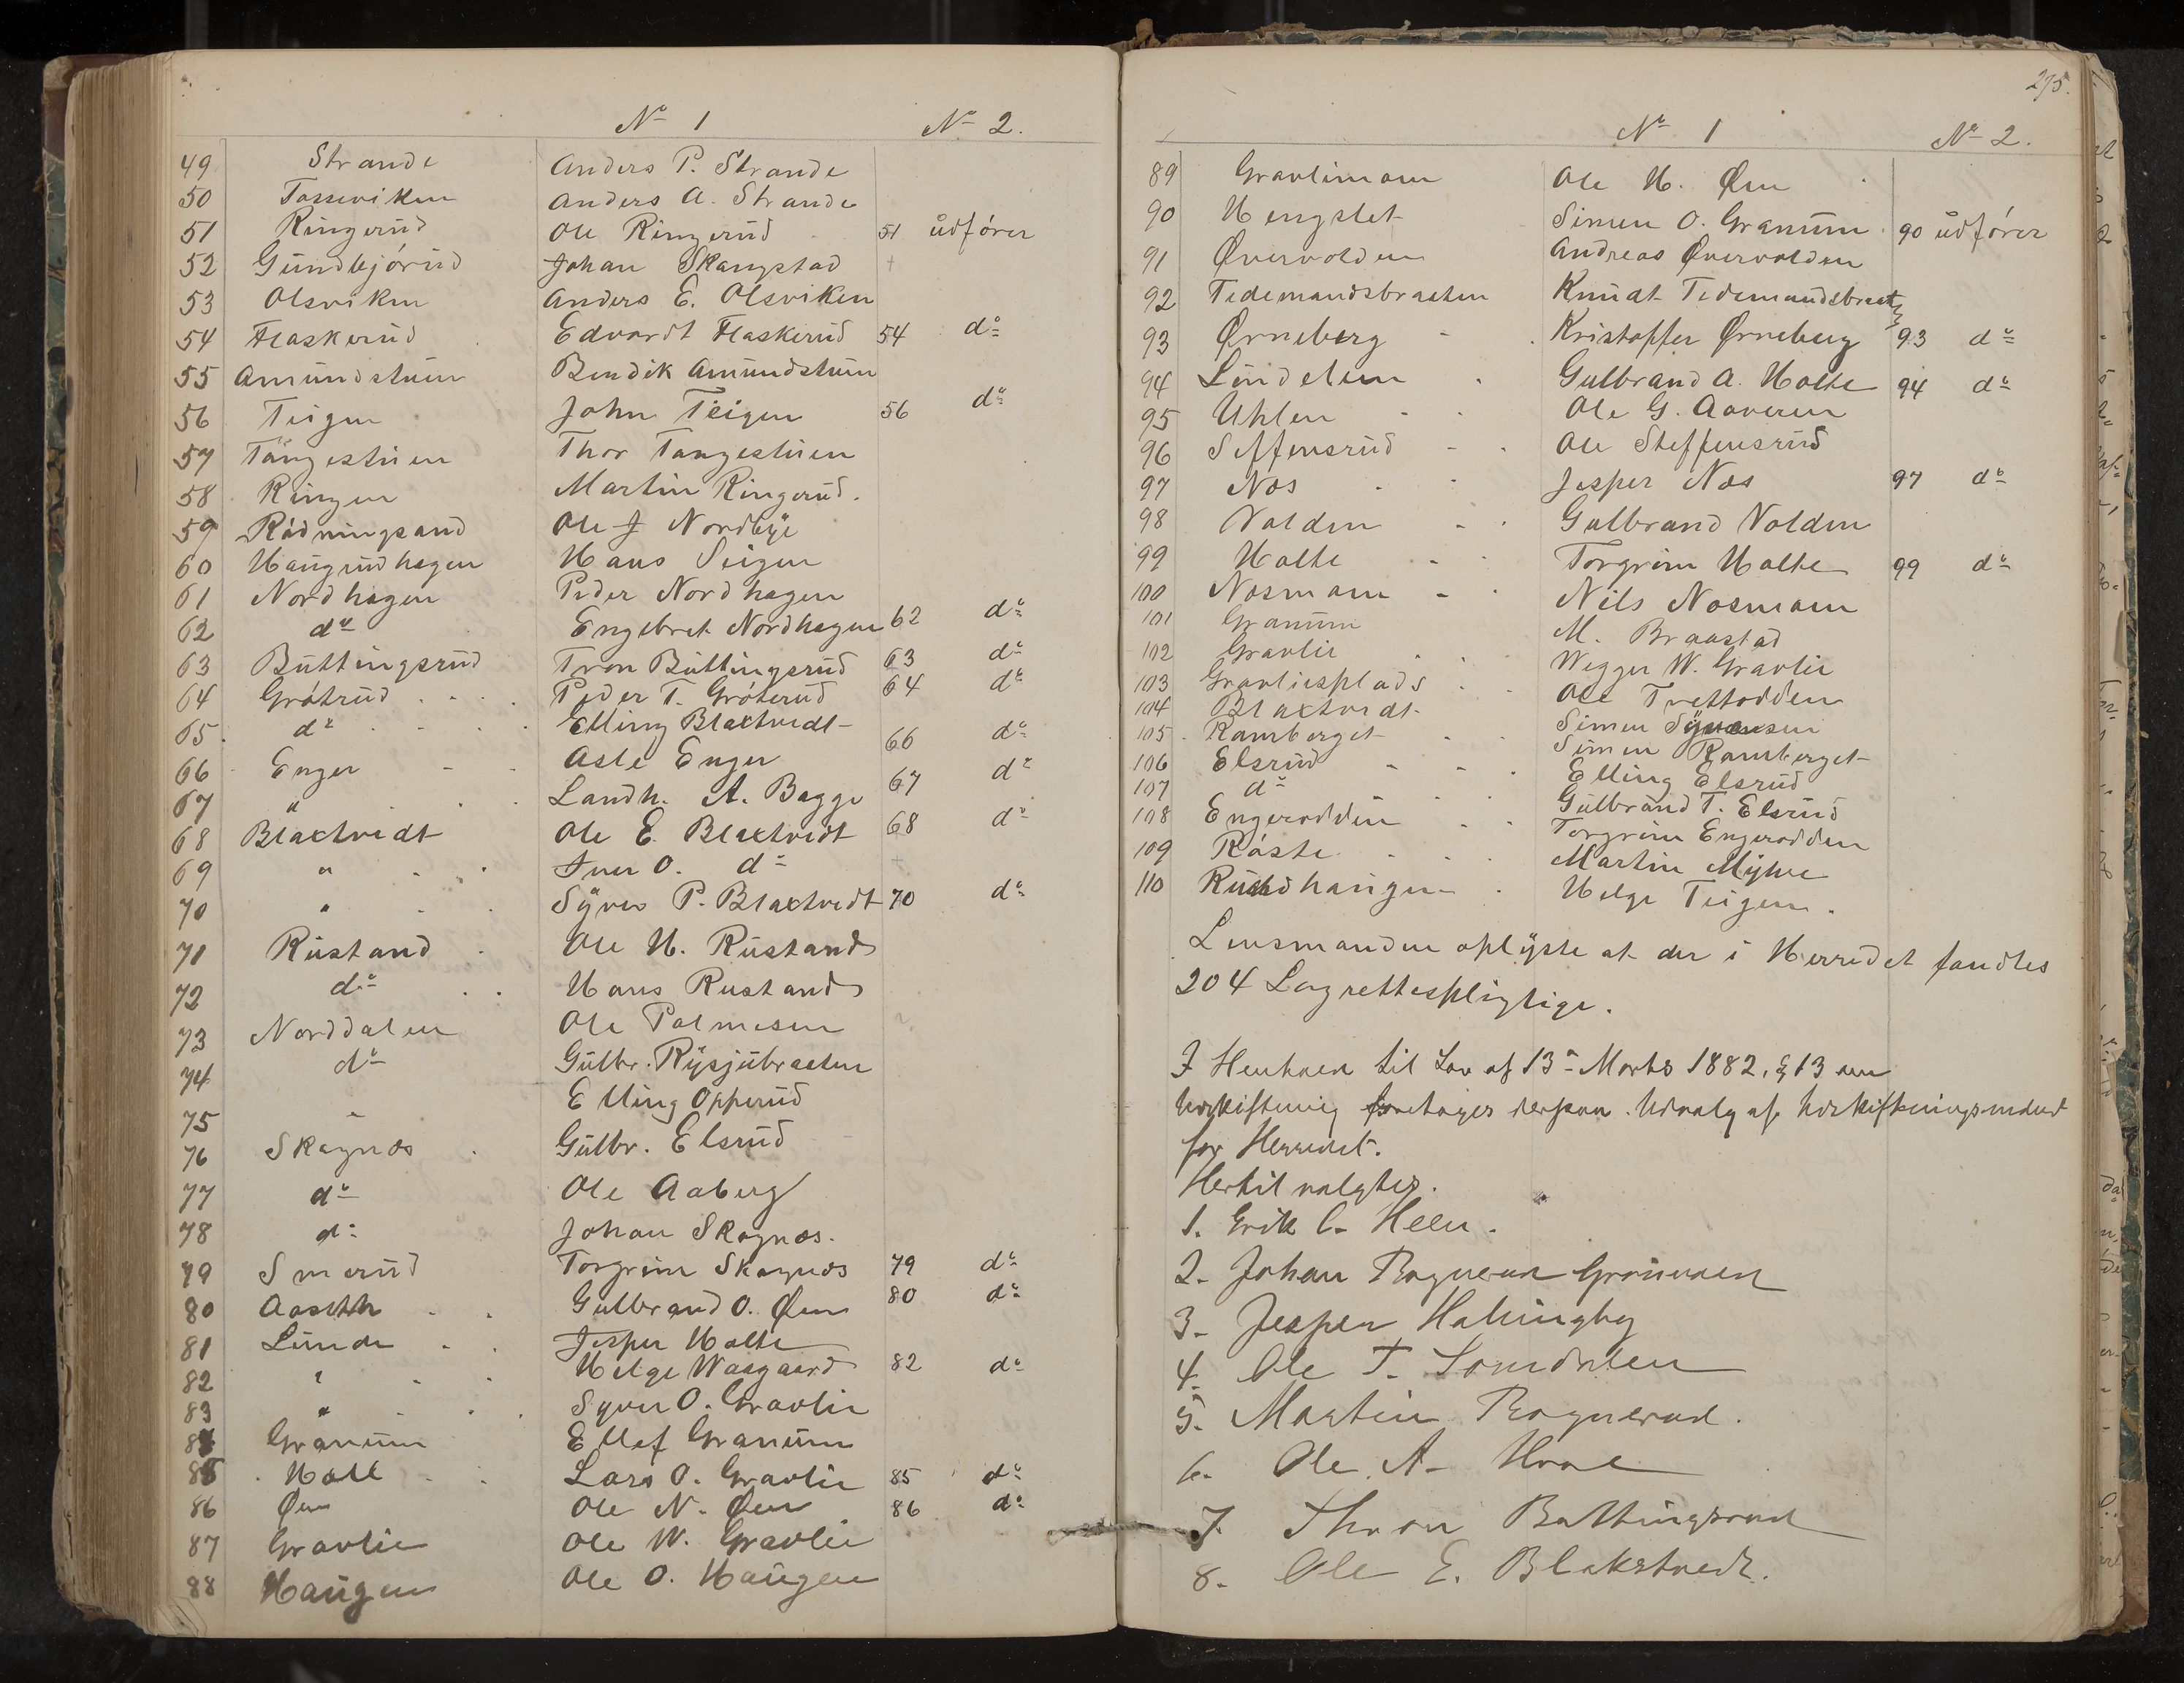 No 1 No 2.
49 Strande Anders P. Strande
50 Tosseviken Anders A. Strande
51 Ringerud Ole Ringerud 51 udfører
52 Gundbjørud Johan Skagnstad
53 Olsviken Anders E. Olsviken
54 Flaskerud Edvardt Flaskerud 54 do
55 Amundstuen Bendik Amundstuen
56 Teigen John Teigen 56 do
57 Tangestuen Thor Tangestuen
58 Ringen Martin Ringerud.
59 Rådningsand Ole J Nordbye
60 Haugrudhagen Hans Seigen
61 Nordhagen Peder Nordhagen
62 do Engebret Nordhagen 62 do
63 Buttingsrud Tron Buttingsrud 63 do
64 Grøtrud Peder T. Grøterud 64 do
65 do Elling Blaxtvedt
66 Enger Asle Enger 66 do
67 " Landh. A. Bagge 67 do
68 Blaxtvedt Ole E. Blaxtvedt 68 do
69 " Iver O. do
70 " Syver P. Blaxtvedt 70 do
71 Rustand Ole H. Rustand
72 do Hans Rustand
73 Norddalen Ole Palmesen
74 do Gulbr. Rysjubraaten
75 " Elling Opperud
76 Skagnæs Gulbr. Elsrud
77 do Ole Aaberg
78 do Johan Skagnæs.
79 Smerud Torgrim Skagnæs 79 do
80 Aaseth Gulbrand O. Øen 80 do
81 Lunde Jesper Holte
82 " Helge Waagaard 82 do
83 " Syver O. Gravlie
84 Granum Ellef Granum
85 Holt Lars O. Gravlie 85 do
86 Øen Ole N. Øen 86 do
87 Gravlie Ole W. Gravlie
88 Haugen Ole O. Haugen
275.
No 1 No 2.
89 Gravlimoen Ole H. Øen
90 Hengslet Simen O. Granum 90 udfører
91 Øvervolden Andreas Øvervolden
92 Tidemandsbraaten Knudt Tidemandsbraaten
93 Ørneberg Kristoffer Ørneberg 93 do
94 Lindelien Gulbrand A. Holte 94 do
95 Uhlen Ole G. Aaveren
96 Seffensrud Ole Steffensrud
97 Næs Jesper Næs 97 do
98 Volden Gulbrand Volden
99 Holte Torgrim Holte 99 do
100 Næsmoen Nils Næsmoen
101 Granum M. Braastad
102 Gravlie Wegger W. Gravlie
103 Gravliesplads Ole Trettodden
104 Blaxtvedt Simen Syversen
105 Ramberget Simen Ramberget
106 Elsrud Elling Elsrud
107 do Gulbrand T. Elsrud
108 Engerodden Torgrim Engerodden
109 Råste Martin Myhre
110 Rudshaugen Helge Teigen.
Lensmanden oplyste at der i Herredet fandtes
204 Lagrettespligtige.
I Henhold til Lov af 13de Marts 1882, § 13 om
Udskiftning foretages derpaa Udvalg af Udskiftningsmænd
for Herredet.
Hertil valgtes.
1. Erik C. Heen.
2. Johan Rognerud Grønvolden
3. Jesper Hallingby
4. Ole T. Somdalen
5. Martin Rognerud.
6. Ole A. Hval
7. Thron Buttingsrud
8. Ole E. Blakstvedt.